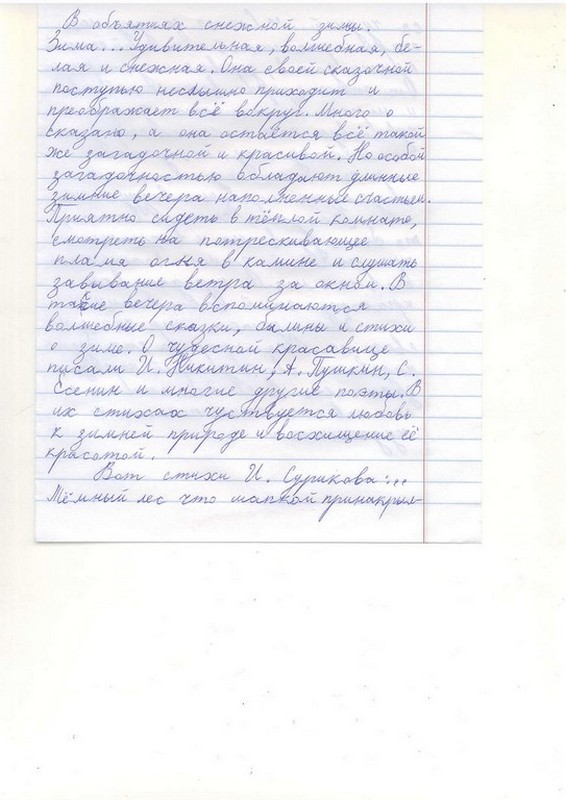 В объятиях снежной зимы.
Зима... Удивительная, волшебная, бе-
лая и снежная. Она своей сказочной
поступью неслышно приходит и
преображает всё вокруг. Много о
сказано, а она остаётся всё такой
же загадочной и красивой. Но особой
загадочностью обладают длинные
зимние вечера наполненные счастьем.
Приятно сидеть в тёплой комнате,
смотреть на потрескивающее
пламя огня в камине и слушать
завывание ветра за окном. В
такие вечера вспоминаются
волшебные сказки, былины и стихи
о зиме. О чудесной красавице
писали И. Никитин, А. Пушкин, С.
Есенин и многие другие поэты. В
их стихах чуствуется любовь
к зимней природе и восхищение её
красотой.
Вот стихи И. Сурикова:..
Тёмный лес что шапкой принакрыл-